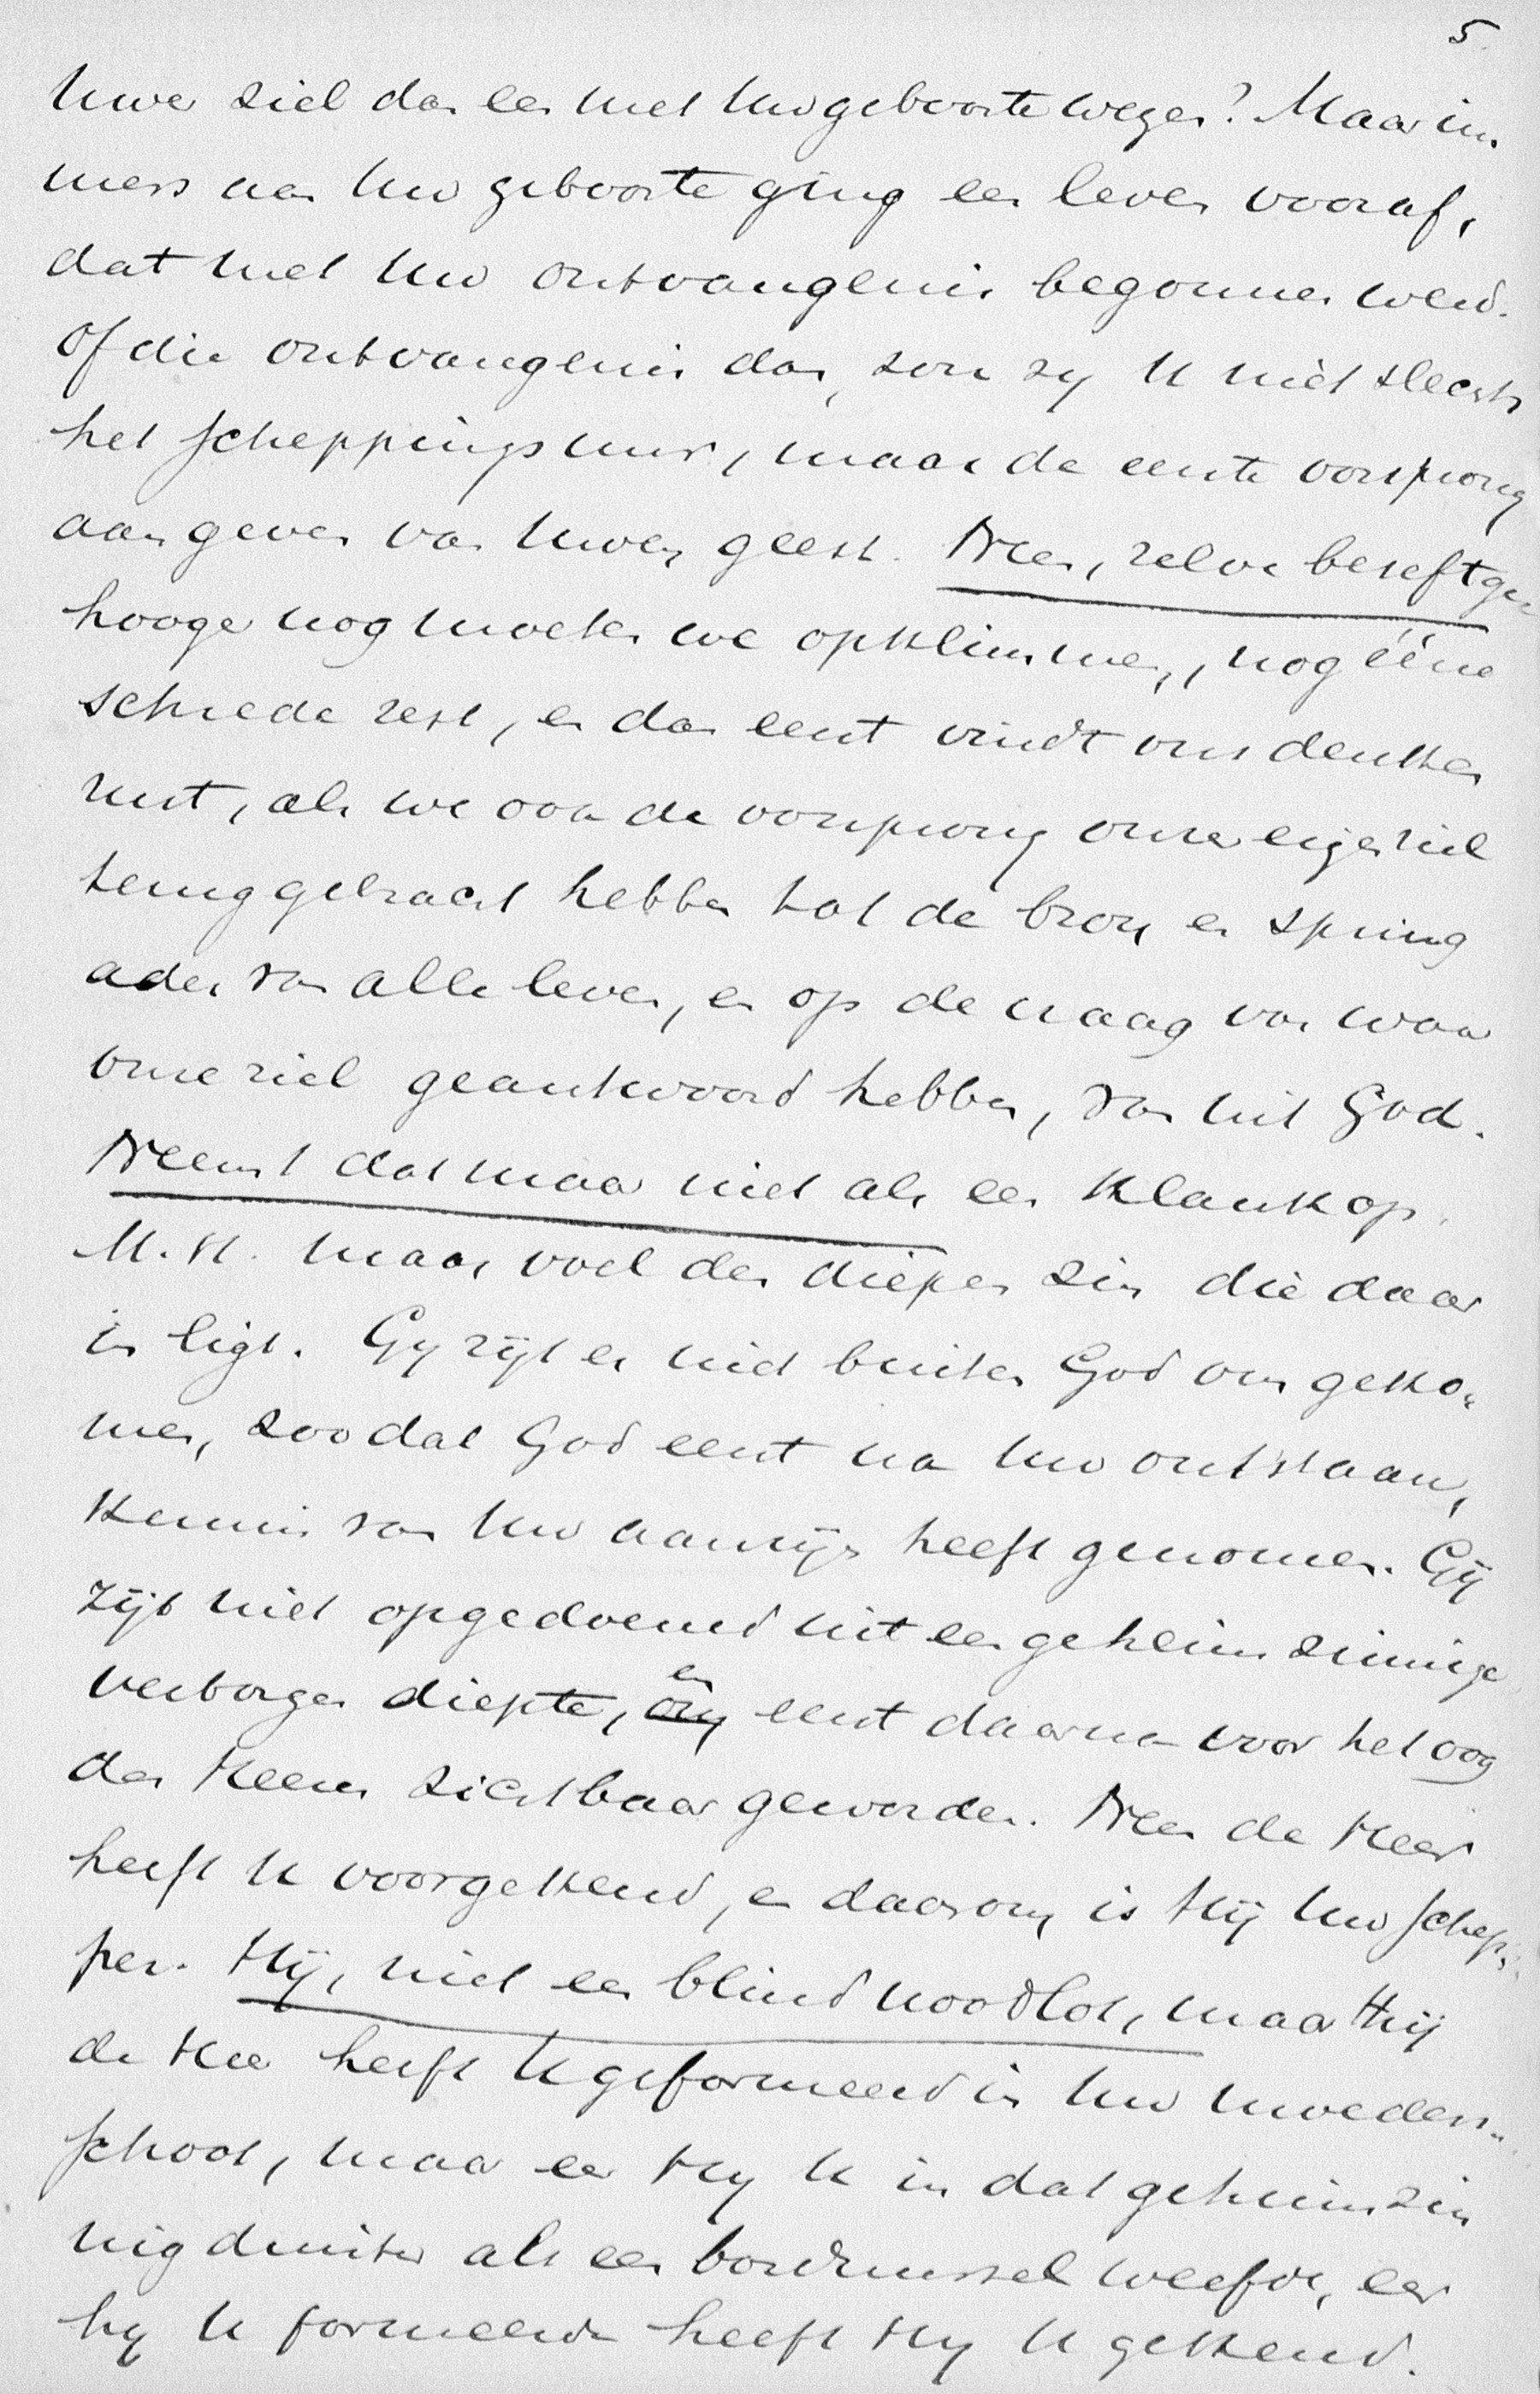 5.
Uwe ziel dan een met Uw geboorte wezen? Maar im-
mers aan Uw geboorte ging een leven vooraf,
dat met Uw ontvangenis begonnen werd.
Of die ontvangenis dan, zou zy U niet slechts
het scheppingsuur, maar de eerste oorsprong
aangeven van Uwen geest. Neen, zelve beseft ge
hooger nog moeten we opklimmen, nog ééne
schrede rest, en dan eerst vindt ons denken
rust, als we ook de oorsprong onzer eigen ziel
teruggebracht hebben tot de bron en spring
ader van alle leven, en op de vraag van waar
onze ziel geantwoord hebben, van uit God.
Neemt dat maar niet als een klank op.
M.H. maar voel den diepen zin die daar
in ligt. Gy zijt er niet buiten God om geko-
men, zoodat God eerst na Uw ontstaan,
kennis van Uw aanzijn heeft genomen. Gij
zijt niet opgedoemd uit een geheimzinnige
verborgen diepte, om en eerst daarna voor het oog
des Heeren zichtbaar geworden. Neen de Heer
heeft U voorgekend, en daarom is Hij Uw schep-
per. Hij, niet een blind noodlot, maar Hij
de Heer heeft U geformeerd in Uw moeders-
schoot, maar eer Hy U in dat geheimzin
nig duister als een borduursel weefde, eer
hy U formeerde heeft Hy U gekend.